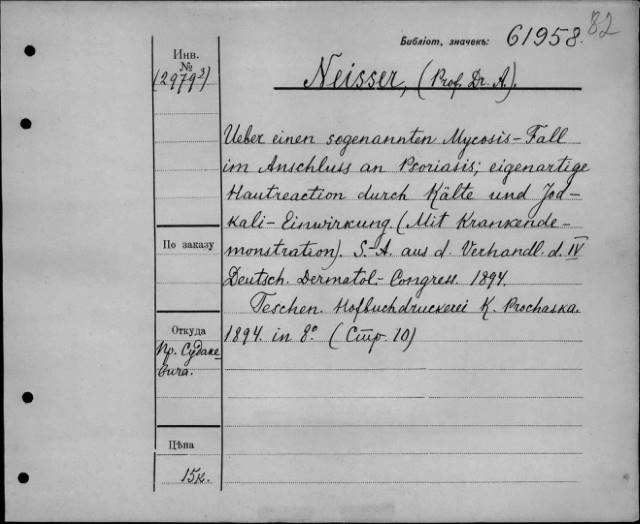 Библіот. значекъ: 61958. 82
Инв.
№
(2979³)
Neisser, (Prof. Dr. A.).
Ueber einen sogenannten Mycosis-Fall
im Anschluss an Psoriasis; eigenartige
Hautreaction durch Kälte und Jod-
kali-Einwirkung. (Mit Krankende-
monstration). S.-A. aus d. Verhandl. d. IV
Deutsch. Dermatol.-Congress. 1894.
Teschen. Hofbuchdruckerei K. Prochaska.
1894. in 8.° (Стр. 10)
По заказу
Откуда
Пр. Судаке-
вича.
Цѣна
15к.